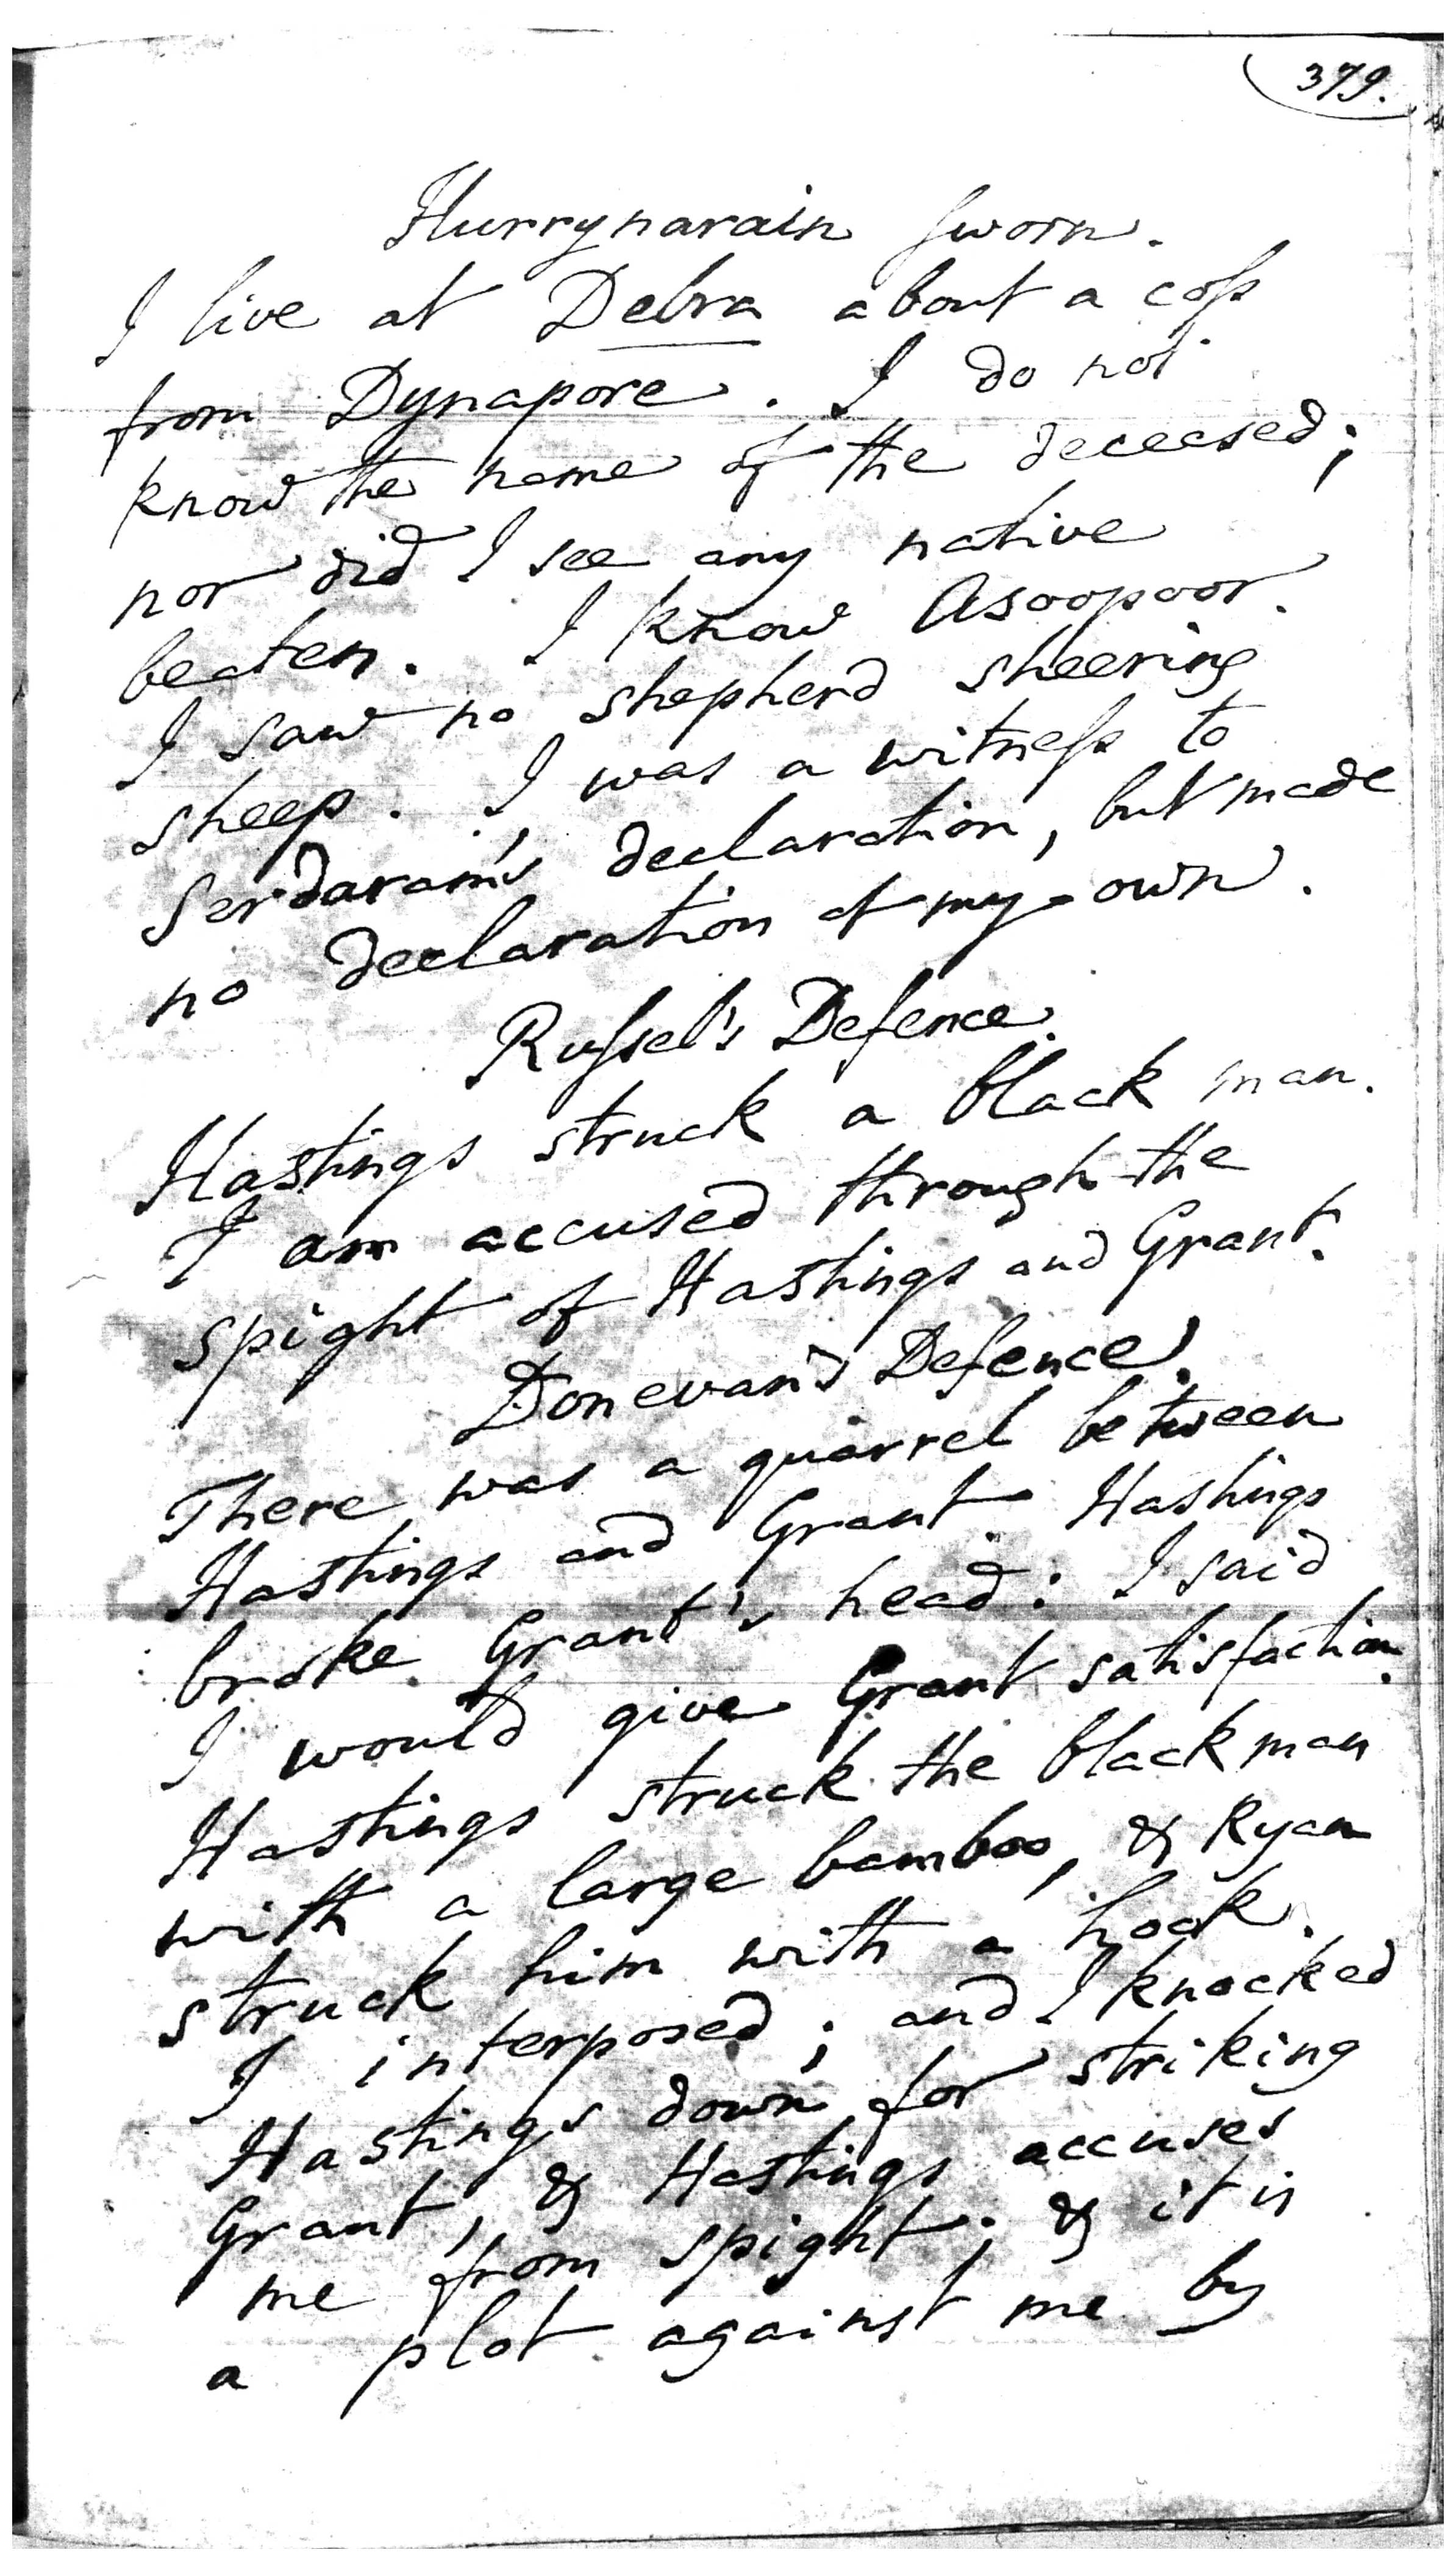 379.
Hurrynarain sworn.
I live at Debra about a coss
from Dynapore. I do not
know the name of the deceased;
nor did I see any native
beaten. I know Asoopoor.
I saw no shepherd sheering
sheep. I was a witness to
Serdaram's declaration, but made
no declaration of my own.
Russel's Defence.
Hastings struck a black man.
I am accused through the
spight of Hastings and Grant.
Donevan's Defence.
There was a quarrel between
Hastings and Grant. Hastings
broke Grant's head: I said
I would give Grant satisfaction.
Hastings struck the black man
with a large bamboo, & Ryan
struck him with a hook.
I interposed; and I knocked
Hastings down for striking
Grant, & Hastings accuses
me from spight; & it is
a plot against me by